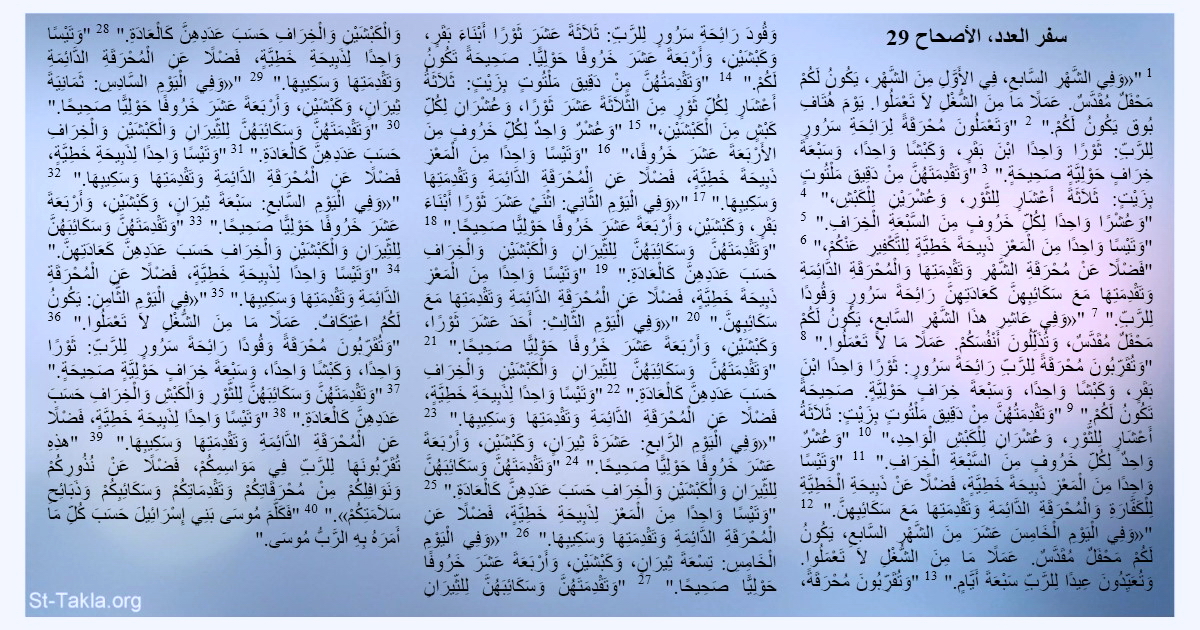 سفر العدد، الأصحاح 29
1 "«وَفِي الشَّهْرِ السَّابعِ، فِي الأَوَّلِ مِنَ الشَّهْرِ، يَكُونُ لَكُمْ
مَحْفَلٌ مُقَدَّسٌ. عَمَلًا مَا مِنَ الشُّغْلِ لاَ تَعْمَلُوا. يَوْمَ هُتَافِ
بُوق يَكُونُ لَكُمْ." 2 "وَتَعْمَلُونَ مُحْرَقَةً لِرَائِحَةِ سَرُورٍ
لِلرَّبِّ: ثَوْرًا وَاحِدًا ابْنَ بَقَرٍ، وَكَبْشًا وَاحِدًا، وَسَبْعَةَ
خِرَافٍ حَوْلِيَّةٍ صَحِيحَةٍ." 3 "وَتَقْدِمَتَهُنَّ مِنْ دَقِيق مَلْتُوتٍ
بِزَيْتٍ: ثَلاَثَةَ أَعْشَارٍ لِلثَّوْرِ، وَعُشْرَيْنِ لِلْكَبْشِ،" 4
"وَعُشْرًا وَاحِدًا لِكُلِّ خَرُوفٍ مِنَ السَّبْعَةِ الْخِرَافِ." 5
"وَتَيْسًا وَاحِدًا مِنَ الْمَعَزِ ذَبِيحَةَ خَطِيَّةٍ لِلتَّكْفِيرِ عَنْكُمْ،" 6
"فَضْلًا عَنْ مُحْرَقَةِ الشَّهْرِ وَتَقْدِمَتِهَا وَالْمُحْرَقَةِ الدَّائِمَةِ
وَتَقْدِمَتِهَا مَعَ سَكَائِبِهِنَّ كَعَادَتِهِنَّ رَائِحَةَ سَرُورٍ وَقُودًا
لِلرَّبِّ." 7 "«وَفِي عَاشِرِ هذَا الشَّهْرِ السَّابعِ، يَكُونُ لَكُمْ
مَحْفَلٌ مُقَدَّسٌ، وَتُذَلِّلُونَ أَنْفُسَكُمْ. عَمَلًا مَا لاَ تَعْمَلُوا." 8
"وَتُقَرِّبُونَ مُحْرَقَةً لِلرَّبِّ رَائِحَةَ سَرُورٍ: ثَوْرًا وَاحِدًا ابْنَ
بَقَرٍ، وَكَبْشًا وَاحِدًا، وَسَبْعَةَ خِرَافٍ حَوْلِيَّةٍ. صَحِيحَةً
تَكُونُ لَكُمْ." 9 "وَتَقْدِمَتُهُنَّ مِنْ دَقِيق مَلْتُوتٍ بِزَيْتٍ: ثَلاَثَةُ
أَعْشَارٍ لِلثَّوْرِ، وَعُشْرَانِ لِلْكَبْشِ الْوَاحِدِ،" 10 "وَعُشْرٌ
وَاحِدٌ لِكُلِّ خَرُوفٍ مِنَ السَّبْعَةِ الْخِرَافِ." 11 "وَتَيْسًا
وَاحِدًا مِنَ الْمَعَزِ ذَبِيحَةَ خَطِيَّةٍ، فَضْلًا عَنْ ذَبِيحَةِ الْخَطِيَّةِ
لِلْكَفَّارَةِ وَالْمُحْرَقَةِ الدَّائِمَةِ وَتَقْدِمَتِهَا مَعَ سَكَائِبِهِنَّ." 12
"«وَفِي الْيَوْمِ الْخَامِسِ عَشَرَ مِنَ الشَّهْرِ السَّابعِ، يَكُونُ
لَكُمْ مَحْفَلٌ مُقَدَّسٌ. عَمَلًا مَا مِنَ الشُّغْلِ لاَ تَعْمَلُوا.
وَتُعَيِّدُونَ عِيدًا لِلرَّبِّ سَبْعَةَ أَيَّامٍ." 13 "وَتُقَرِّبُونَ مُحْرَقَةً،
وَقُودَ رَائِحَةِ سَرُورٍ لِلرَّبِّ: ثَلاَثَةَ عَشَرَ ثَوْرًا أَبْنَاءَ بَقَرٍ،
وَكَبْشَيْنِ، وَأَرْبَعَةَ عَشَرَ خَرُوفًا حَوْلِيًّا. صَحِيحَةً تَكُونُ
لَكُمْ." 14 "وَتَقْدِمَتُهُنَّ مِنْ دَقِيق مَلْتُوتٍ بِزَيْتٍ: ثَلاَثَةُ
أَعْشَارٍ لِكُلِّ ثَوْرٍ مِنَ الثَّلاَثَةَ عَشَرَ ثَوْرًا، وَعُشْرَانِ لِكُلِّ
كَبْشٍ مِنَ الْكَبْشَيْنِ،" 15 "وَعُشْرٌ وَاحِدٌ لِكُلِّ خَرُوفٍ مِنَ
الأَرْبَعَةَ عَشَرَ خَرُوفًا،" 16 "وَتَيْسًا وَاحِدًا مِنَ الْمَعَزِ
ذَبِيحَةَ خَطِيَّةٍ، فَضْلًا عَنِ الْمُحْرَقَةِ الدَّائِمَةِ وَتَقْدِمَتِهَا
وَسَكِيبِهَا." 17 "«وَفِي الْيَوْمِ الثَّانِي: اثْنَيْ عَشَرَ ثَوْرًا أَبْنَاءَ
بَقَرٍ، وَكَبْشَيْنِ، وَأَرْبَعَةَ عَشَرَ خَرُوفًا حَوْلِيًّا صَحِيحًا." 18
"وَتَقْدِمَتَهُنَّ وَسَكَائِبَهُنَّ لِلثِّيرَانِ وَالْكَبْشَيْنِ وَالْخِرَافِ
حَسَبَ عَدَدِهِنَّ كَالْعَادَةِ." 19 "وَتَيْسًا وَاحِدًا مِنَ الْمَعَزِ
ذَبِيحَةَ خَطِيَّةٍ، فَضْلًا عَنِ الْمُحْرَقَةِ الدَّائِمَةِ وَتَقْدِمَتِهَا مَعَ
سَكَائِبِهِنَّ." 20 "«وَفِي الْيَوْمِ الثَّالِثِ: أَحَدَ عَشَرَ ثَوْرًا،
وَكَبْشَيْنِ، وَأَرْبَعَةَ عَشَرَ خَرُوفًا حَوْلِيًّا صَحِيحًا." 21
"وَتَقْدِمَتَهُنَّ وَسَكَائِبَهُنَّ لِلثِّيرَانِ وَالْكَبْشَيْنِ وَالْخِرَافِ
حَسَبَ عَدَدِهِنَّ كَالْعَادَةِ." 22 "وَتَيْسًا وَاحِدًا لِذَبِيحَةِ خَطِيَّةٍ،
فَضْلًا عَنِ الْمُحْرَقَةِ الدَّائِمَةِ وَتَقْدِمَتِهَا وَسَكِيبِهَا." 23
"«وَفِي الْيَوْمِ الرَّابعِ: عَشَرَةَ ثِيرَانٍ، وَكَبْشَيْنِ، وَأَرْبَعَةَ
عَشَرَ خَرُوفًا حَوْلِيًّا صَحِيحًا." 24 "وَتَقْدِمَتَهُنَّ وَسَكَائِبَهُنَّ
لِلثِّيرَانِ وَالْكَبْشَيْنِ وَالْخِرَافِ حَسَبَ عَدَدِهِنَّ كَالْعَادَةِ." 25
"وَتَيْسًا وَاحِدًا مِنَ الْمَعَزِ لِذَبِيحَةِ خَطِيَّةٍ، فَضْلًا عَنِ
الْمُحْرَقَةِ الدَّائِمَةِ وَتَقْدِمَتِهَا وَسَكِيبِهَا." 26 "«وَفِي الْيَوْمِ
الْخَامِسِ: تِسْعَةَ ثِيرَانٍ، وَكَبْشَيْنِ، وَأَرْبَعَةَ عَشَرَ خَرُوفًا
حَوْلِيًّا صَحِيحًا." 27 "وَتَقْدِمَتَهُنَّ وَسَكَائِبَهُنَّ لِلثِّيرَانِ
وَالْكَبْشَيْنِ وَالْخِرَافِ حَسَبَ عَدَدِهِنَّ كَالْعَادَةِ." 28 "وَتَيْسًا
وَاحِدًا لِذَبِيحَةِ خَطِيَّةٍ، فَضْلًا عَنِ الْمُحْرَقَةِ الدَّائِمَةِ
وَتَقْدِمَتِهَا وَسَكِيبِهَا." 29 "«وَفِي الْيَوْمِ السَّادِسِ: ثَمَانِيَةَ
ثِيرَانٍ، وَكَبْشَيْنِ، وَأَرْبَعَةَ عَشَرَ خَرُوفًا حَوْلِيًّا صَحِيحًا."
30 "وَتَقْدِمَتَهُنَّ وَسَكَائِبَهُنَّ لِلثِّيرَانِ وَالْكَبْشَيْنِ وَالْخِرَافِ
حَسَبَ عَدَدِهِنَّ كَالْعَادَةِ." 31 "وَتَيْسًا وَاحِدًا لِذَبِيحَةِ خَطِيَّةٍ،
فَضْلًا عَنِ الْمُحْرَقَةِ الدَّائِمَةِ وَتَقْدِمَتِهَا وَسَكِيبِهَا." 32
"«وَفِي الْيَوْمِ السَّابعِ: سَبْعَةَ ثِيرَانٍ، وَكَبْشَيْنِ، وَأَرْبَعَةَ
عَشَرَ خَرُوفًا حَوْلِيًّا صَحِيحًا." 33 "وَتَقْدِمَتَهُنَّ وَسَكَائِبَهُنَّ
لِلثِّيرَانِ وَالْكَبْشَيْنِ وَالْخِرَافِ حَسَبَ عَدَدِهِنَّ كَعَادَتِهِنَّ."
34 "وَتَيْسًا وَاحِدًا لِذَبِيحَةِ خَطِيَّةٍ، فَضْلًا عَنِ الْمُحْرَقَةِ
الدَّائِمَةِ وَتَقْدِمَتِهَا وَسَكِيبِهَا." 35 "«فِي الْيَوْمِ الثَّامِنِ: يَكُونُ
لَكُمُ اعْتِكَافٌ. عَمَلًا مَا مِنَ الشُّغْلِ لاَ تَعْمَلُوا." 36
"وَتُقَرِّبُونَ مُحْرَقَةً وَقُودًا رَائِحَةَ سَرُورٍ لِلرَّبِّ: ثَوْرًا
وَاحِدًا، وَكَبْشًا وَاحِدًا، وَسَبْعَةَ خِرَافٍ حَوْلِيَّةٍ صَحِيحَةٍ."
37 "وَتَقْدِمَتَهُنَّ وَسَكَائِبَهُنَّ لِلثَّوْرِ وَالْكَبْشِ وَالْخِرَافِ حَسَبَ
عَدَدِهِنَّ كَالْعَادَةِ." 38 "وَتَيْسًا وَاحِدًا لِذَبِيحَةِ خَطِيَّةٍ، فَضْلًا
عَنِ الْمُحْرَقَةِ الدَّائِمَةِ وَتَقْدِمَتِهَا وَسَكِيبِهَا." 39 "هذِهِ
تُقَرِّبُونَهَا لِلرَّبِّ فِي مَوَاسِمِكُمْ، فَضْلًا عَنْ نُذُورِكُمْ
وَنَوَافِلِكُمْ مِنْ مُحْرَقَاتِكُمْ وَتَقْدِمَاتِكُمْ وَسَكَائِبِكُمْ وَذَبَائِحِ
سَلاَمَتِكُمْ»." 40 "فَكَلَّمَ مُوسَى بَنِي إِسْرَائِيلَ حَسَبَ كُلِّ مَا
أَمَرَهُ بِهِ الرَّبُّ مُوسَى."
St-Takla.org